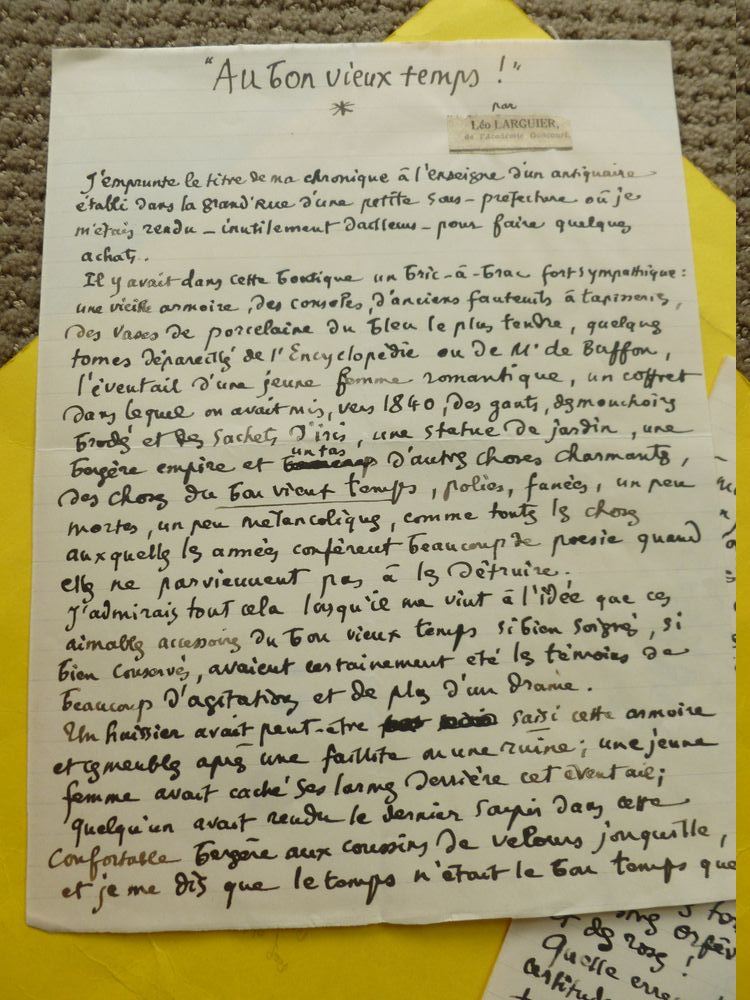 "Au bon vieux temps !"
*
par
Léo LARGUIER,
de l'Académie Goncourt.
J'emprunte le titre de ma chronique à l'enseigne d'un antiquaire
établi dans la grand'rue d'une petite sous-préfecture où je
m'étais rendu - inutilement d'ailleurs - pour faire quelques
achats.
Il y avait dans cette boutique un bric-à-brac fort sympathique :
une vieille armoire, des consoles, d'anciens fauteuils à tapisseries,
des vases de porcelaine du bleu le plus tendre, quelques
tomes dépareillés de l'Encyclopédie ou de Mr de Buffon,
l'éventail d'une jeune femme romantique, un coffret
dans lequel on avait mis, vers 1840, des gants, des mouchoirs
brodés et des sachets d'iris, une statue de jardin, une
bergère empire et un tas d'autres choses charmantes,
des choses du bon vieux temps, polies, fanées, un peu
mortes, un peu mélancoliques, comme toutes les choses
auxquelles les années confèrent beaucoup de poésie quand
elles ne parviennent pas à les détruire.
J'admirais tout cela lorsqu'il me vint à l'idée que ces
aimables accessoires du bon vieux temps si bien soignés, si
bien conservés, avaient certainement été les témoins de
beaucoup d'agitations et de plus d'un drame.
Un huissier avait peut-être saisi cette armoire
et ces meubles après une faillite ou une ruine; une jeune
femme avait caché ses larmes derrière cet éventail;
quelqu'un avait rendu le dernier soupir dans cette
confortable bergère aux coussins de velours jonquille,
et je me dis que le temps n'était le bon temps que
des roses !
Quelle erre
certitude